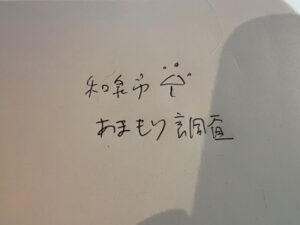 和泉市
あまもり調査